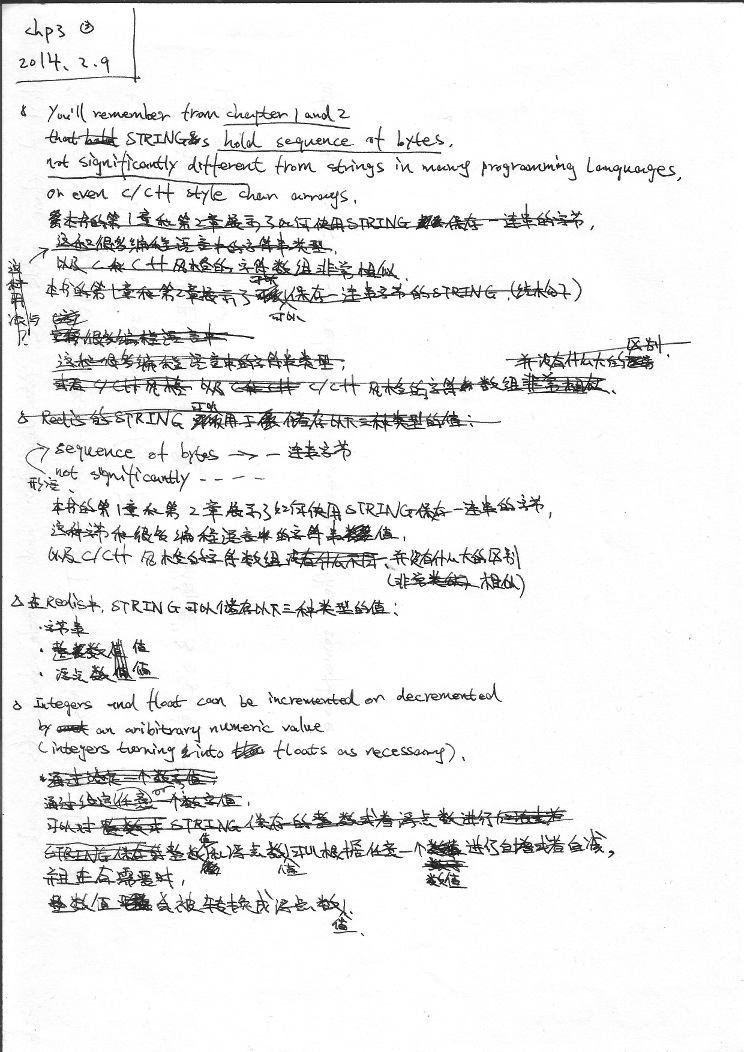 chp3 ③
2014. 2.9
You'll remember from chapter 1 and 2
that hold STRINGs hold sequence of bytes,
not significantly different from strings in many programming languages,
or even C/C++ style char arrays.
本书的第1章和第2章展示了如何使用STRING 保存一连串的字节,
这和很多编程语言中的字符串类型,
以及C和C++风格的字符数组非常相似.
本书的第1章和第2章展示了 可以 保存一连串字节的STRING,
可以
这种用法与
很多编程语言中
区别
这和很多编程语言中的字符串类型, 并没有什么大的
或者 C/C++风格 以及 C和C++ C/C++ 风格的字符数组非常相似.
Redis的STRING 可以 用于储存以下三种类型的值:
sequence of bytes → 一连串字节
not significantly - - - -
形容
本书的第1章和第2章展示了如何使用STRING保存一连串的字节,
这种字节和很多编程语言中的字符串值,
以及C/C++风格的字符数组没有什么不同, 并没有什么大的区别
(非常类似, 相似)
在Redis中, STRING可以储存以下三种类型的值:
·字节串
·整数值
·浮点数值
Integers and float can be incremented or decremented
by an aribitrary numeric value
(integers turning into floats as necessary).
通过给定一个数字值,
通过给定任意一个数字值,
可以对 STRING保存的整数或者浮点数进行
STRING保存的整数值 或 浮点数值 可以根据任意一个 数值 进行自增或者自减,
并且在需要时,
整数值 会被转换成浮点数值.